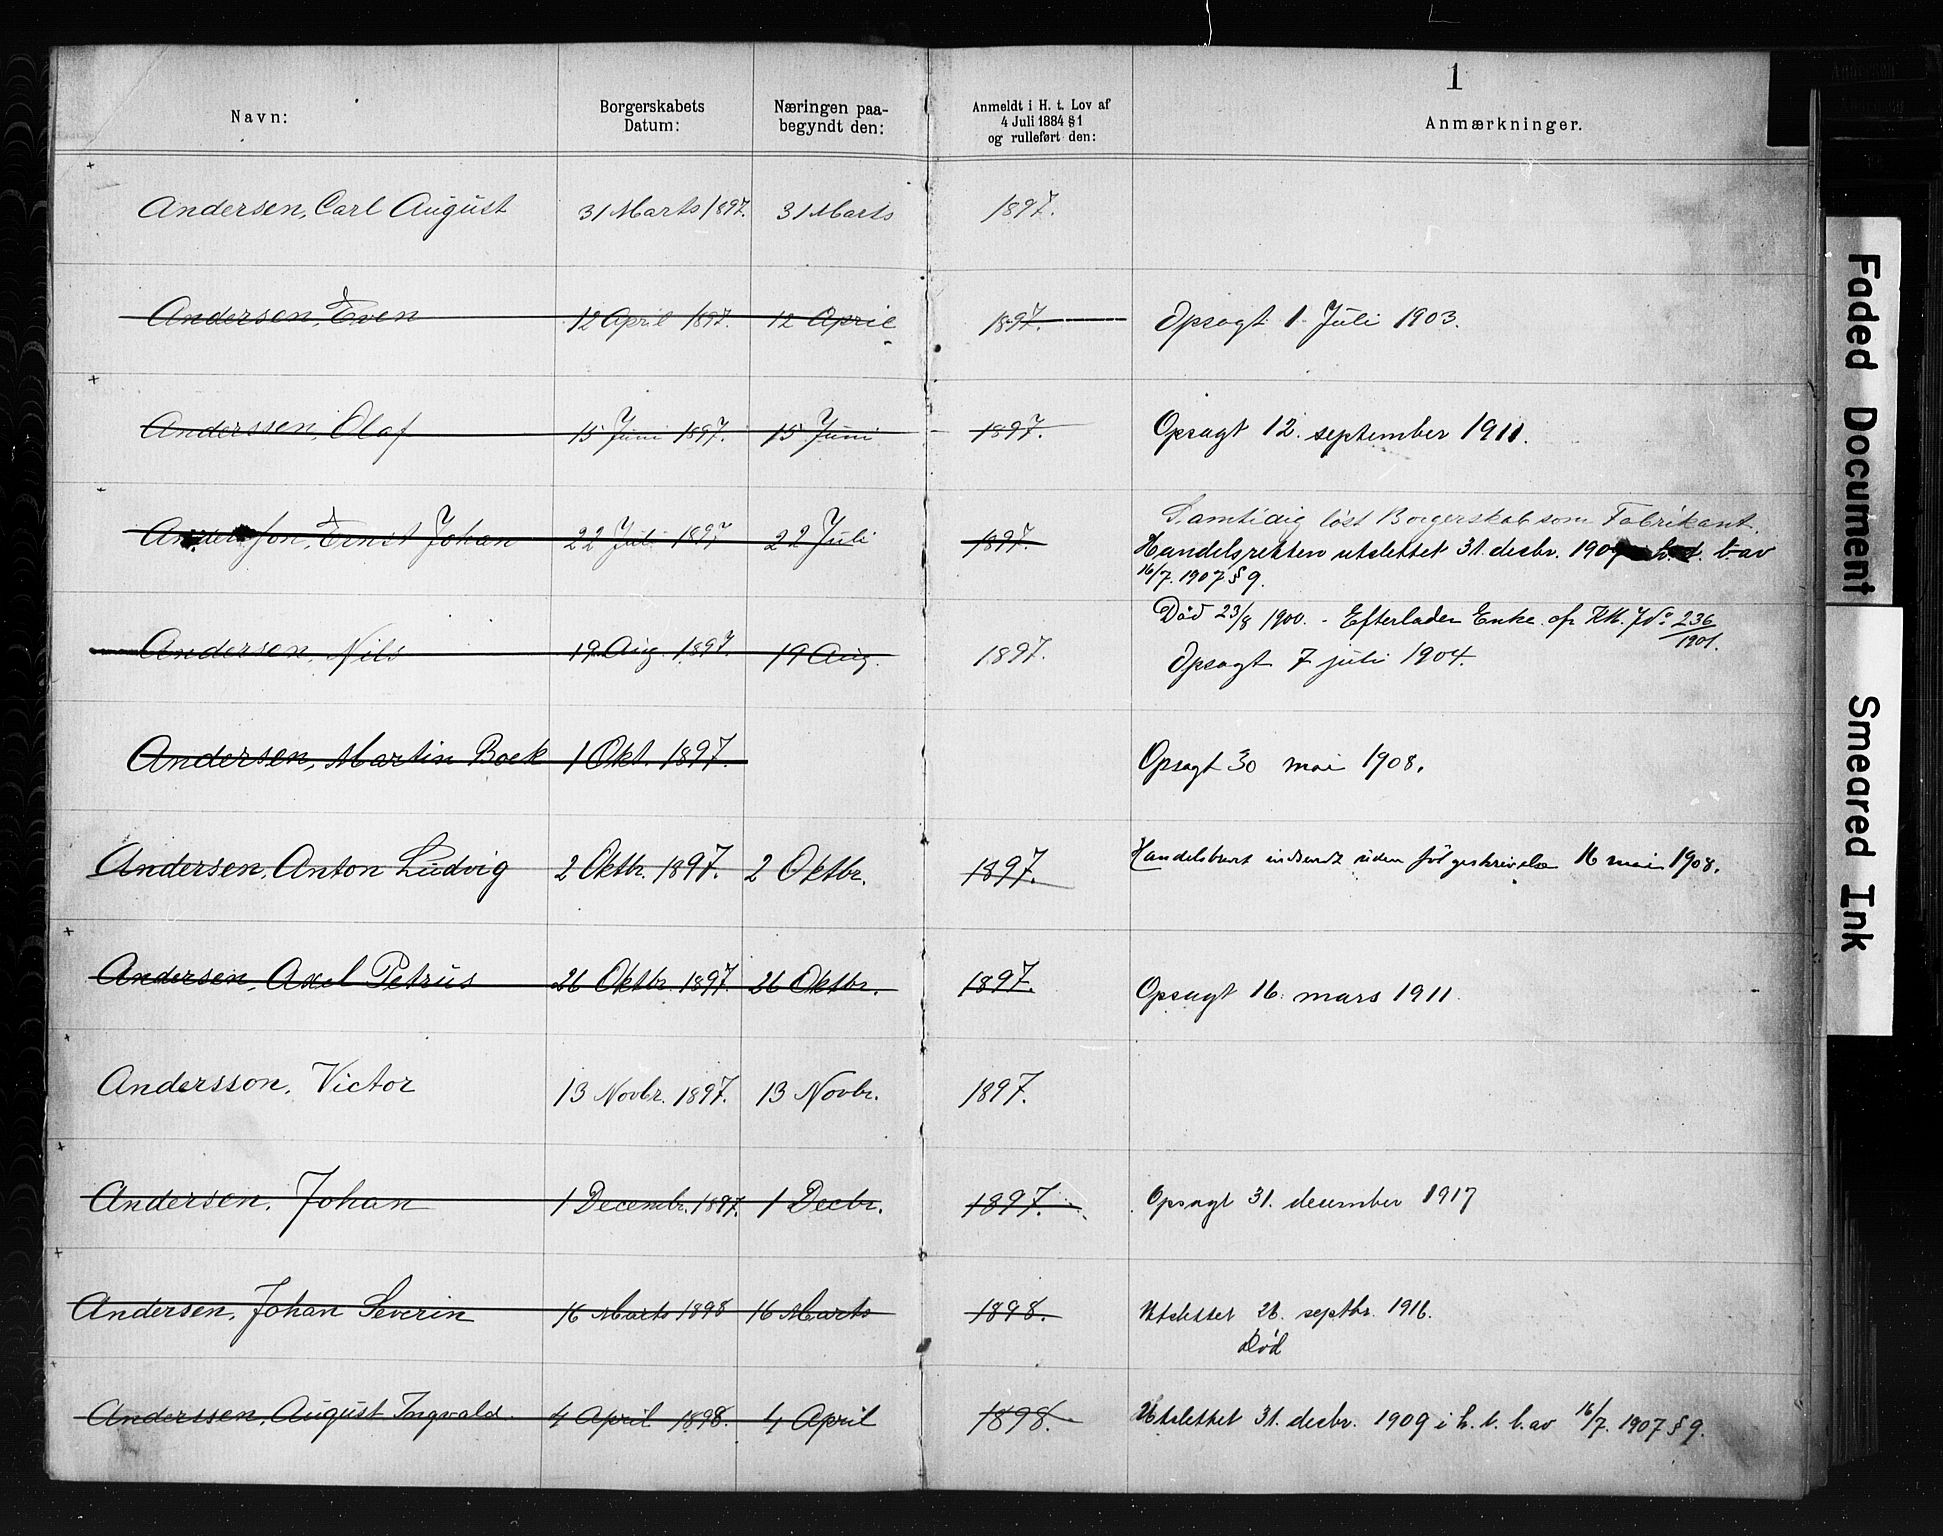 1
Navn: Borgerskabets Datum: Næringen paa-begyndt den: Anmeldt i H. t. Lov af 4 Juli 1884 § 1 og rulleført den: Anmærkninger.
Andersen, Carl August 31 Marts 1897. 31 Marts 1897.
Andersen, Even 12 April 1897. 12 April 1897. Opsagt 1. Juli 1903.
Anderssen, Olaf 15 Juni 1897. 15 Juni 1897. Opsagt 12. september 1911.
Samtidig løst Borgerskab som Fabrikant.
Ernst Johan 22 Juli 1897 22 Juli 1897. Handelsretten utslettet 31. desbr. 1909 l. av
16/7. 1907 § 9.
Død 23/8 1900. - Efterlader Enke. No: 236/1901.
Andersen, Nils 19 Aug. 1897. 19 Aug. 1897. Opsagt 7 juli 1904.
Andersen, Martin Boek 1 Okt. 1897. Opsagt 30 mai 1908.
Andersen, Anton Ludvig 2 Oktbr. 1897. 2 Oktbr. 1897. Handelsbrev indsendt uden følgeskrivelse 16 mai 1908.
Andersen, Axel Petrus 26 Oktbr. 1897. 26 Oktbr. 1897. Opsagt 16. mars 1911.
Andersson, Victor 13 Novbr. 1897. 13 Novbr. 1897.
Andersen, Johan 1 Decembr. 1897. 1 Decbr. 1897. Opsagt 31. desember 1917
Andersen, Johan Severin 16 Marts 1898 16 Marts 1898. Utslettet 26. septbr. 1916.
Død
Anderssen, August Ingvald. 4 April 1898. 4 April 1898. Utslettet 31. desbr. 1909 i h. t. l. av 16/7. 1907 § 9.
Faded Document
Smeared Ink